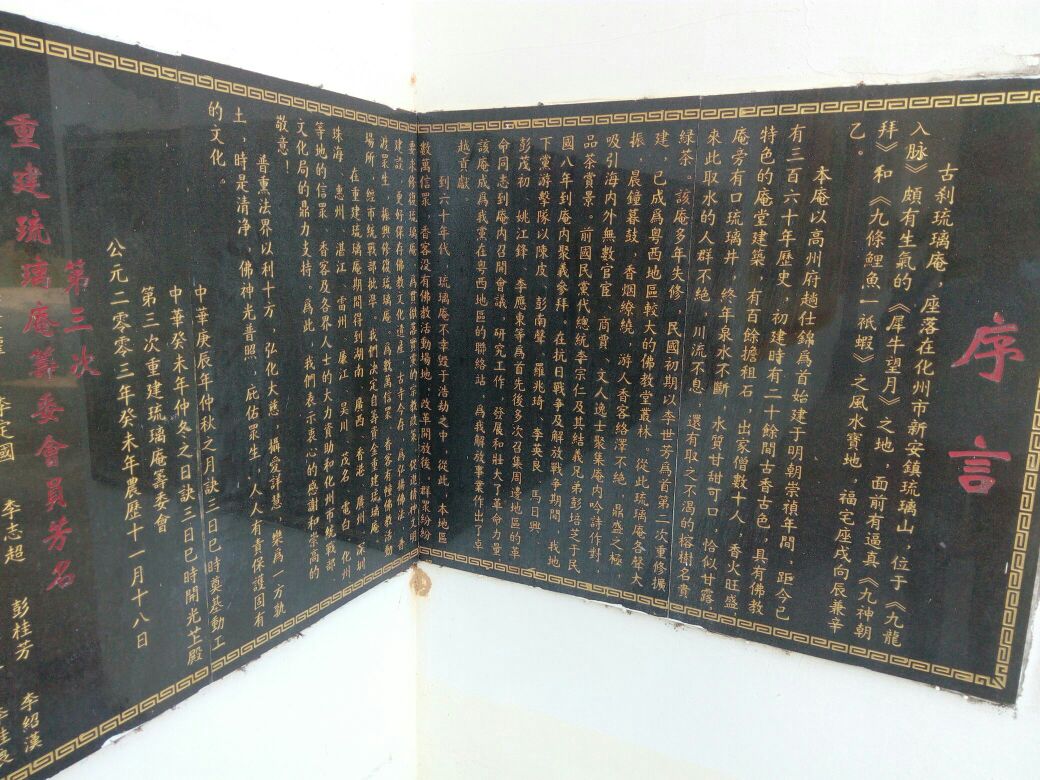 序言
古刹琉璃庵，座落在化州市新安鎮琉璃山，位于《九龍
入脉》頗有生氣的《犀牛望月》之地，面前有逼真《九神朝
拜》和《九條鯉魚一祇蝦》之風水寶地，福宅座戌向辰兼辛
乙。
本庵以高州府趙仕錦爲首始建于明朝崇禎年間，距今已
有三百六十年歷史，初建時有二十餘間古香古色，具有佛教
特色的庵堂建築，有百餘擔租石，出家僧數十人，香火旺盛
庵旁有口琉璃井，終年泉水不斷，水質甘甜可口，恰似甘露，
來此取水的人群不絶，川流不息，還有取之不渴的榕樹名貴
緑茶。該庵多年失修，民國初期以李世芳爲首第二次重修擴
建，已成爲粤西地區較大的佛教堂叢林。從此琉璃庵各聲大
振，晨鐘暮鼓，香烟繚繞，游人香客絡澤不絶，鼎盛之極
吸引海内外無數官宦、商賈、文人逸士聚集庵内吟詩作對，
品茶賞景。前國民黨代總統李宗仁及其結義兄弟彭培芝于民
國八年到庵内聚義參拜。在抗日戰争及解放戰争期間，我地
下黨游擊隊以陳皮、彭南聲、羅兆琦、李英良、馬日興
彭茂初、姚江鋒、李應東等爲首先後多次召集周邊地區的革
命同志到庵内召開會議，研究工作，發展和壯大了革命力量，
該庵成爲我黨在粤西地區的聯絡站，爲我解放事業作出了卓
越貢獻。
到六十年代，琉璃庵不幸毀于浩劫之中，從此，本地區
數萬信眾、香客没有佛教活動場地，改革開放後，群眾紛紛
要求修復琉璃庵。爲貫徹落實黨的宗教政策，促進精神文明
建設，更好保存佛教文化遺産，古寺今存，爲弘揚佛法，普
渡眾生，振興修復琉璃庵。爲數萬信眾、香客有種佛教活動
場所，經市統戰部批學，我們决定自籌資金重建琉璃庵
在重建琉璃庵期間得到湖南、廣西、香港、廣州、深圳
珠海、惠州、湛江、雷州、廉江、吴川、茂名、電白、化州
等地的信眾、香客及各界人士的大力資助和化州市統戰部、
文化局的鼎力支持。爲此，我們表示衷心的感谢和崇高的
敬意！
普熏法界以利十方，弘化大慈，攝愛詳慧，樂爲一方執
土，時是清净，佛神光普照，庇佑眾生，人人有責保護固有
的文化。
中華庚辰年仲秋之月訣三日巳時奠基動工
中華癸未年仲冬之日訣三日巳時開光芷殿
第三次重建琉璃庵籌委會
公元二零零三年癸未年農歷十一月十八日
第三次
重建琉璃庵籌委會員芳名
李定國 李志超 彭桂芳 李紹漢